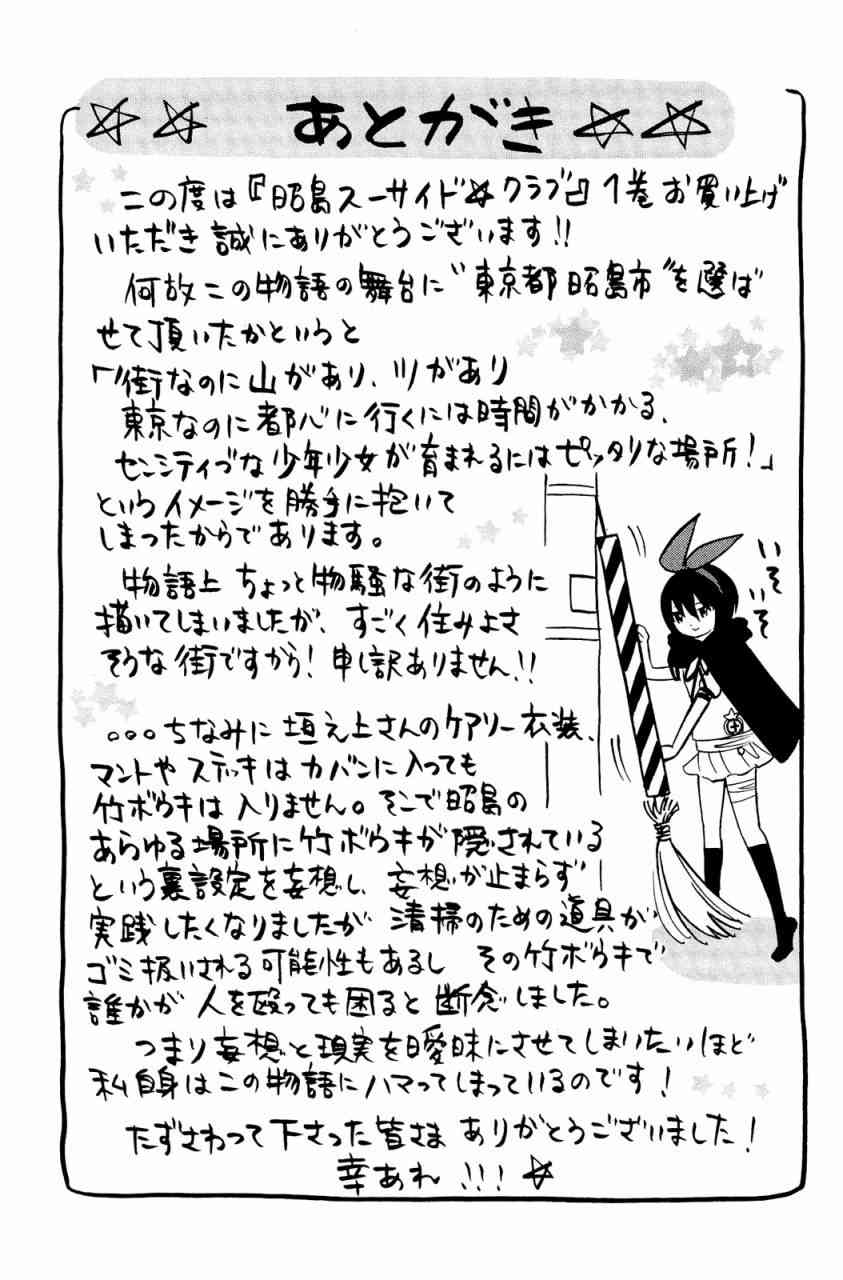 ☆☆ あとがき ☆☆
この度は『昭島スーサイド☆クラブ』1巻お買い上げ
いただき誠にありがとうございます!!
何故この物語の舞台に"東京都昭島市"を選ば
せて頂いたかというと
「街なのに山があり、川があり
東京なのに都心に行くには時間がかかる、
センシティブな少年少女が育まれるにはピッタリな場所!」
というイメージを勝手に抱いて
しまったからであります。
物語上ちょっと物騒な街のように
描いてしまいましたが、すごく住みよさ
そうな街ですから!申し訳ありません!!
いそいそ
。。。ちなみに垣之上さんのケアリー衣装、
マントやステッキはカバンに入っても
竹ボウキは入りません。そこで昭島の
あらゆる場所に竹ボウキが隠されている
という裏設定を妄想し、妄想が止まらず
実践したくなりましたが 清掃のための道具が
ゴミ扱いされる可能性もあるし その竹ボウキで
誰かが人を殴っても困ると断念しました。
つまり妄想と現実を曖昧にさせてしまいたいほど
私自身はこの物語にハマってしまっているのです!
たずさわって下さった皆さま ありがとうございました!
幸あれ!!!☆